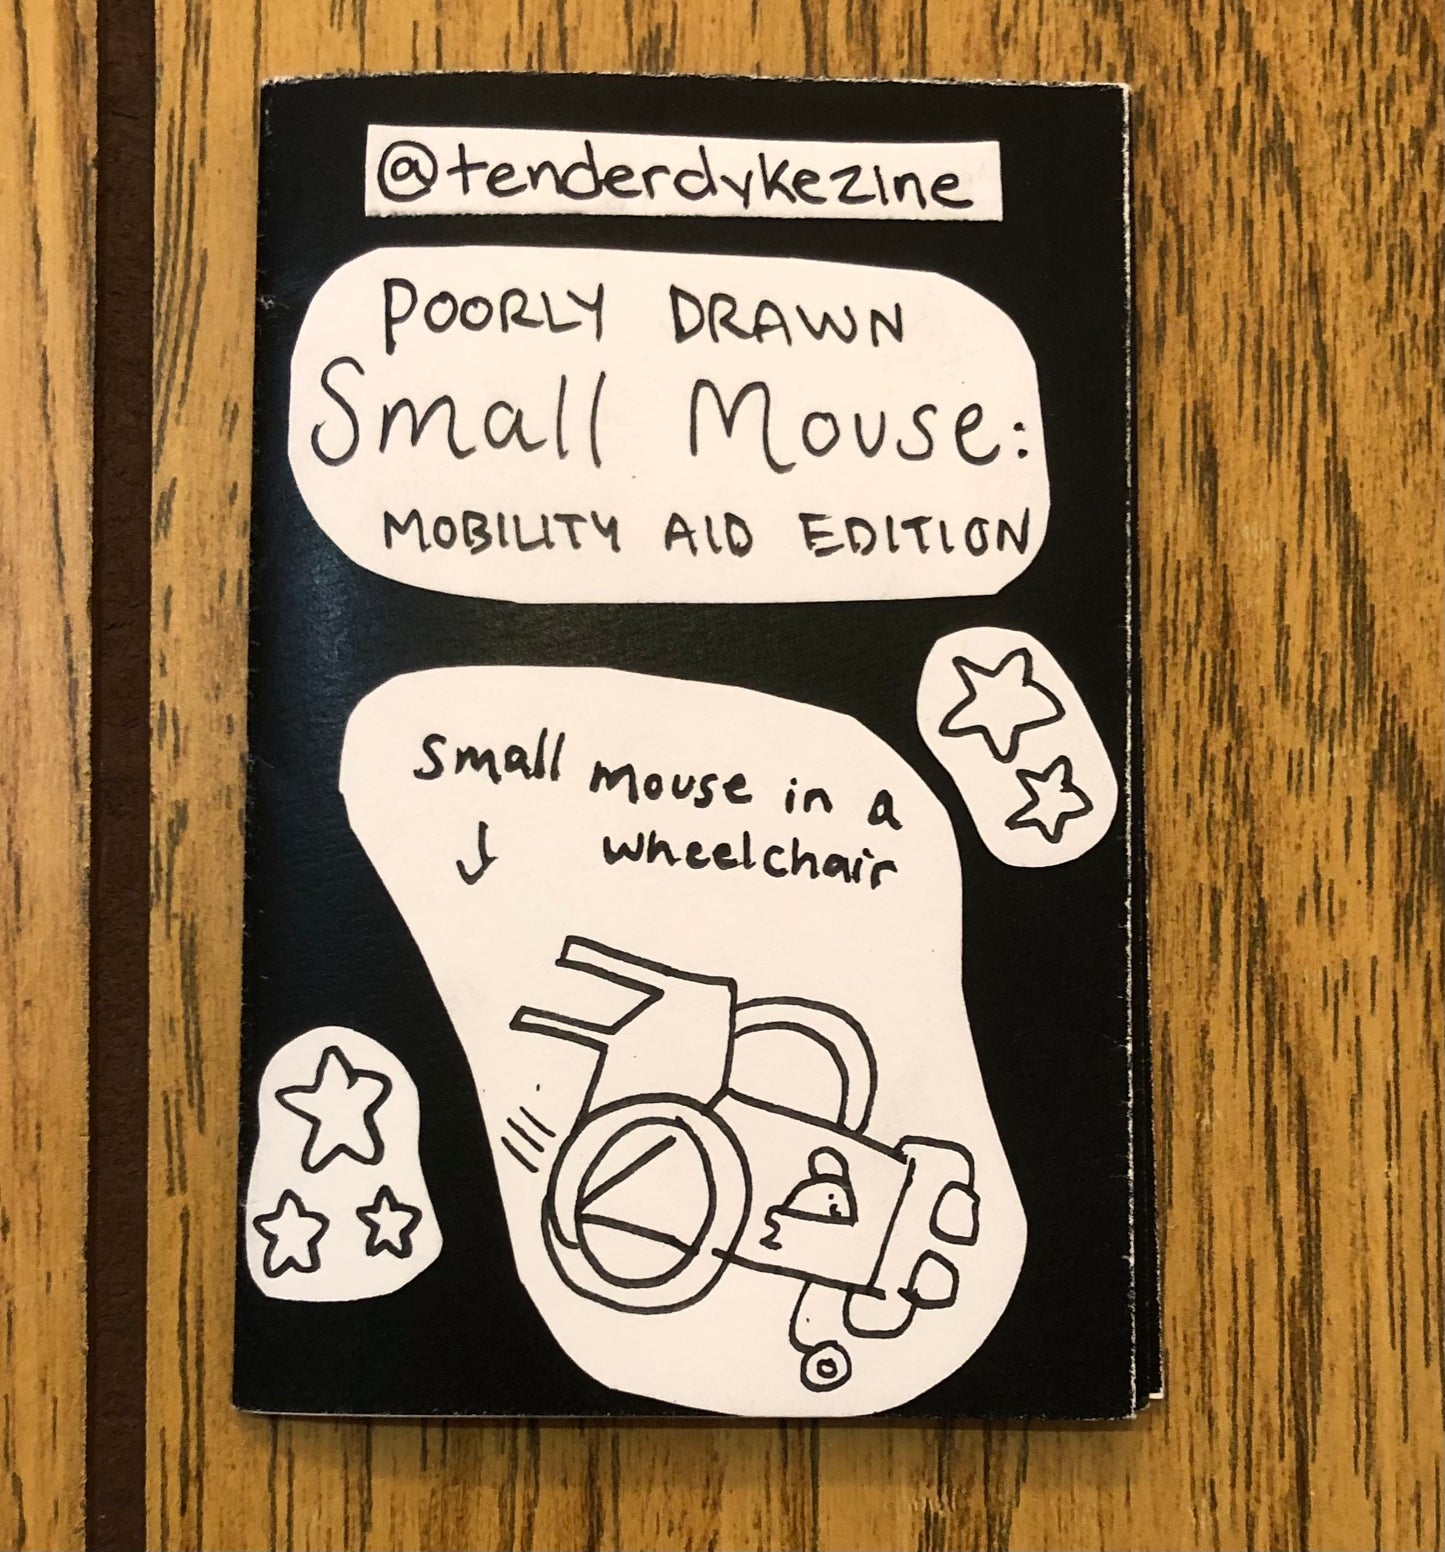 @tenderdykezine
POORLY DRAWN
Small Mouse:
MOBILITY AID EDITION
small mouse in a
wheelchair